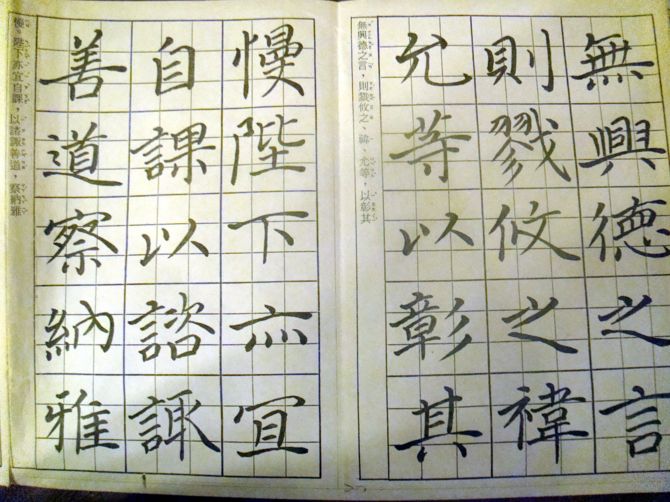 無興德之言
則戮攸之禕
允等以彰其
無興德之言，則戮攸之、禕、允等，以彰其
慢陛下亦宜
自課以諮諏
善道察納雅
慢。陛下亦宜自課，以諮諏善道，察納雅